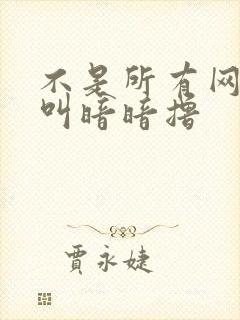 不是所有网
叫暗暗撸
贾永婕